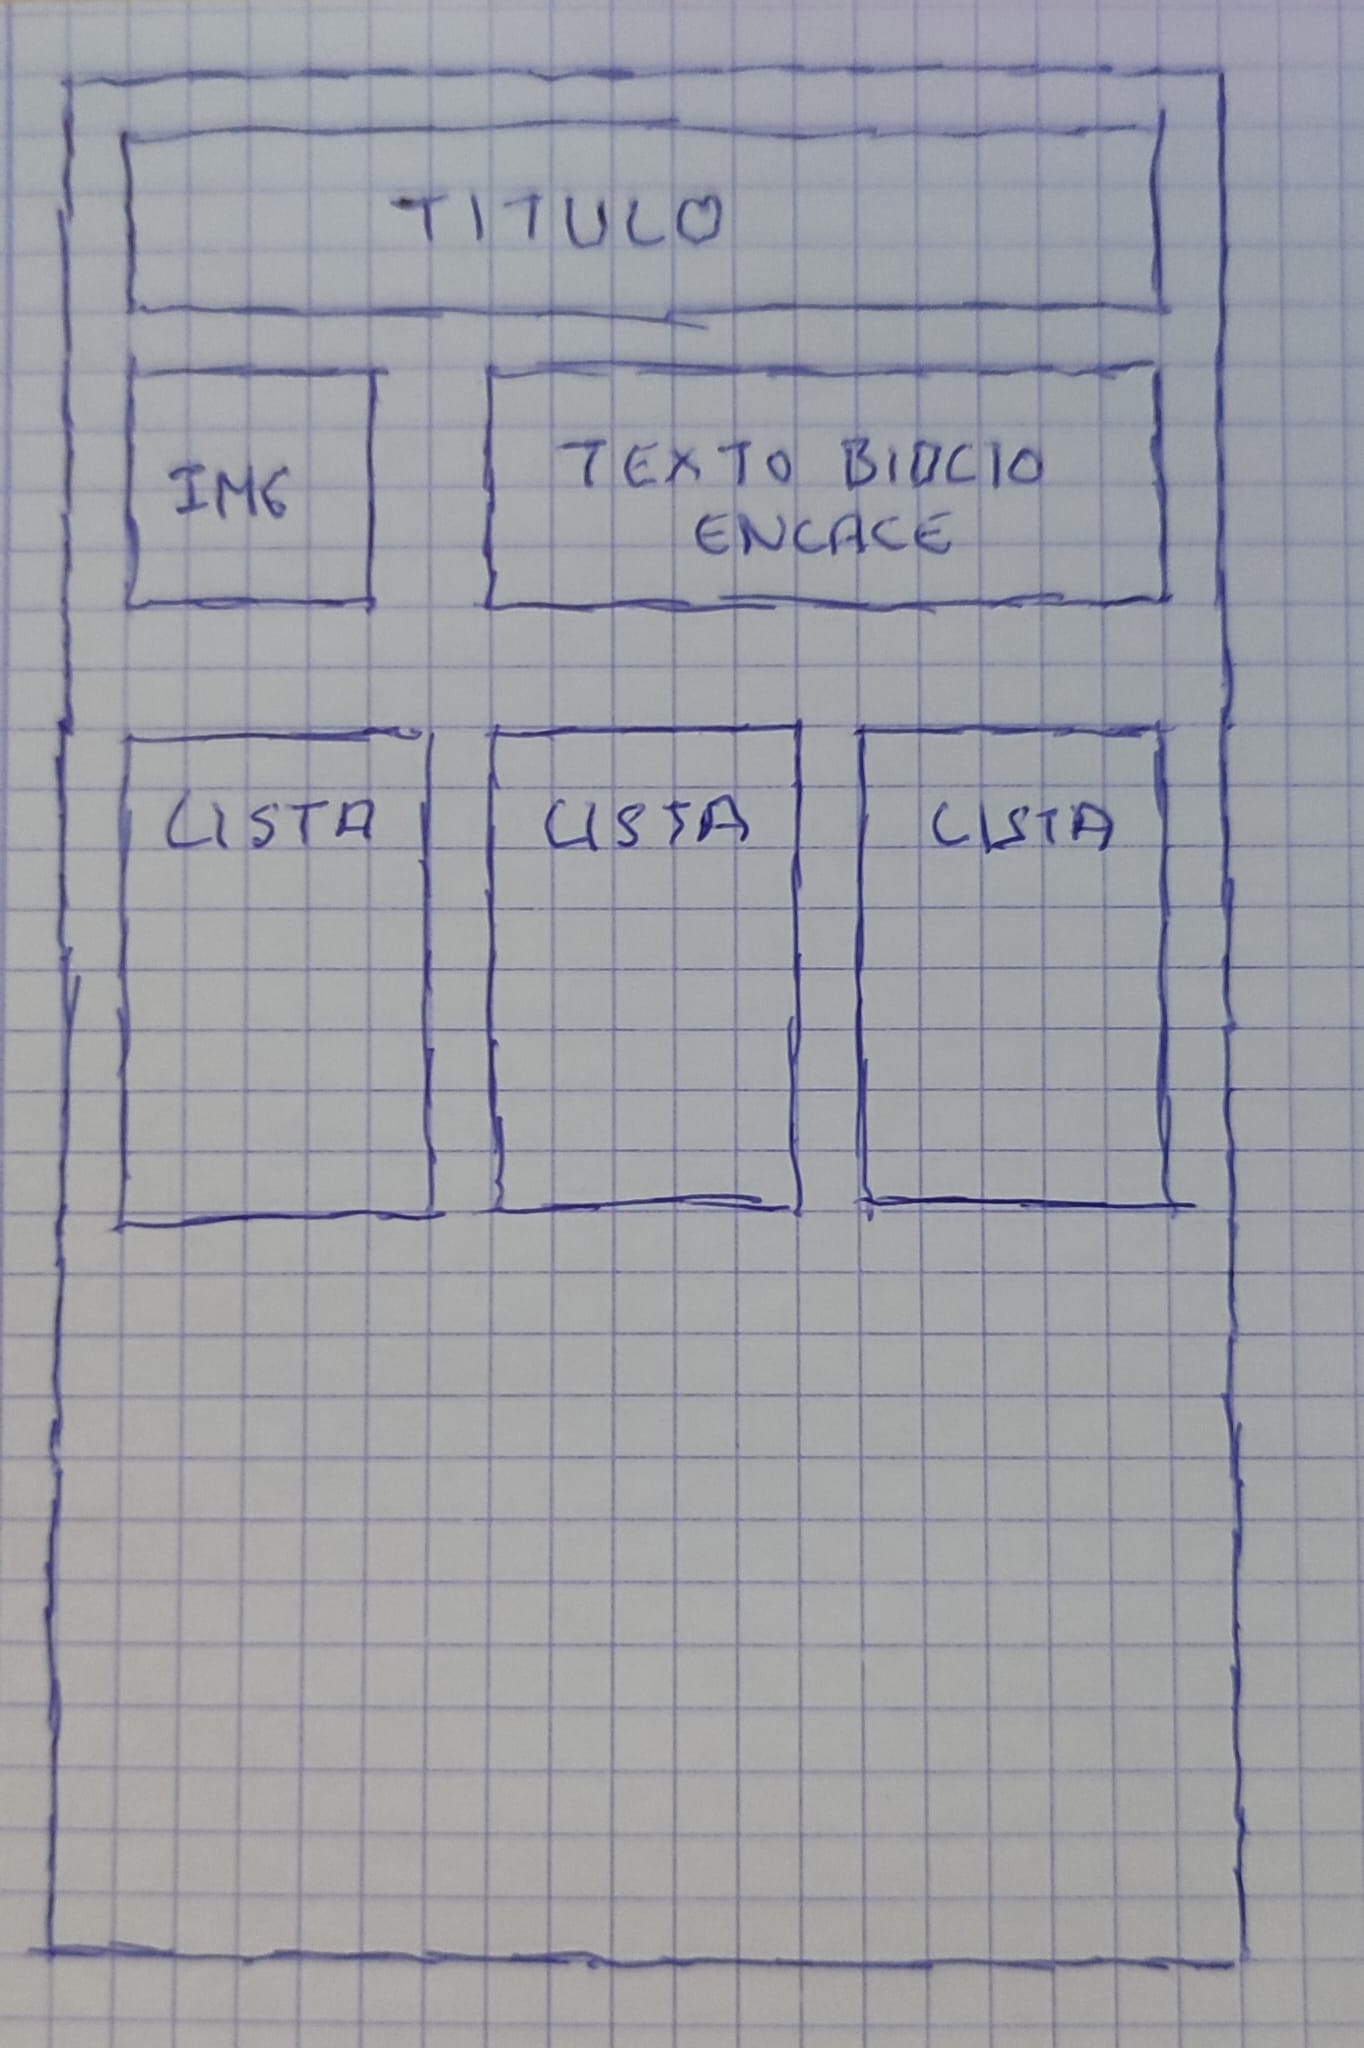 TITULO
IMG
TEXTO BIOCIO
ENLACE
LISTA LISTA LISTA